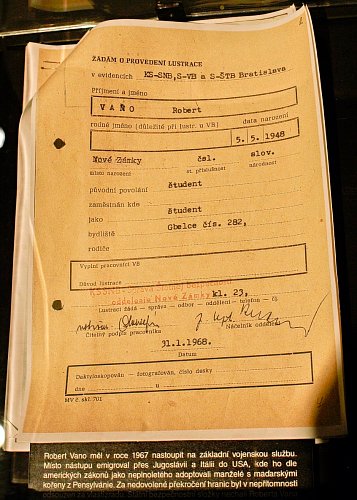 2
ŽÁDÁM O PROVEDENÍ LUSTRACE
v evidencích KS-SNB,S-VB a S-ŠTB Bratislava
Příjmení a jméno
VAŇO Robert
rodné jméno (důležité při lustr. u VB) datum narození
5. 5. 1948
Nové Zámky čsl. slov.
místo narození st. příslušnost národnost
původní povolání študent
zaměstnán kde
jako študent
bydliště Gbelce čís. 282,
rodiče
Vyplní pracovníci VB
Důvod lustrace
oddelenie Nové Zámky kl. 23,
Lustraci žádá — správa — odbor — oddělení — telefon — č.
Čitelný podpis pracovníka Náčelník oddělení
31.1.1968.
Datum
Daktyloskopován — fotografován, číslo desky
dne u
MV č. skl. 701
Robert Vano měl v roce 1967 nastoupit na základní vojenskou službu.
Místo nástupu emigroval přes Jugoslávii a Itálii do USA, kde ho dle
amerických zákonů jako neplnoletého adoptovali manželé s maďarskými
kořeny z Pensylvánie. Za nedovolené překročení hranic byl v nepřítomnosti